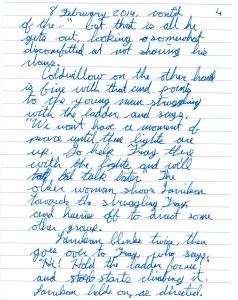 8 February 2014, contd 4
of the - " but that is all he
gets out, looking somewhat
discomfited at not showing his
ways.
Coldwillow on the other hand
is fine with that and points
to the young man struggling
with the ladder, and says,
"We won't have a moment of
peace until those lights are
up. Go help Tray there
with the lights and we'll
talk later." The
older woman shoos Farriban
towards the struggling Tray,
and hurries off to direct some
other group.
Farriban blinks twice, then
goes over to Tray, who says,
"Hi! Hold the ladder for me!"
and starts climbing it.
Farriban holds on, as directed.